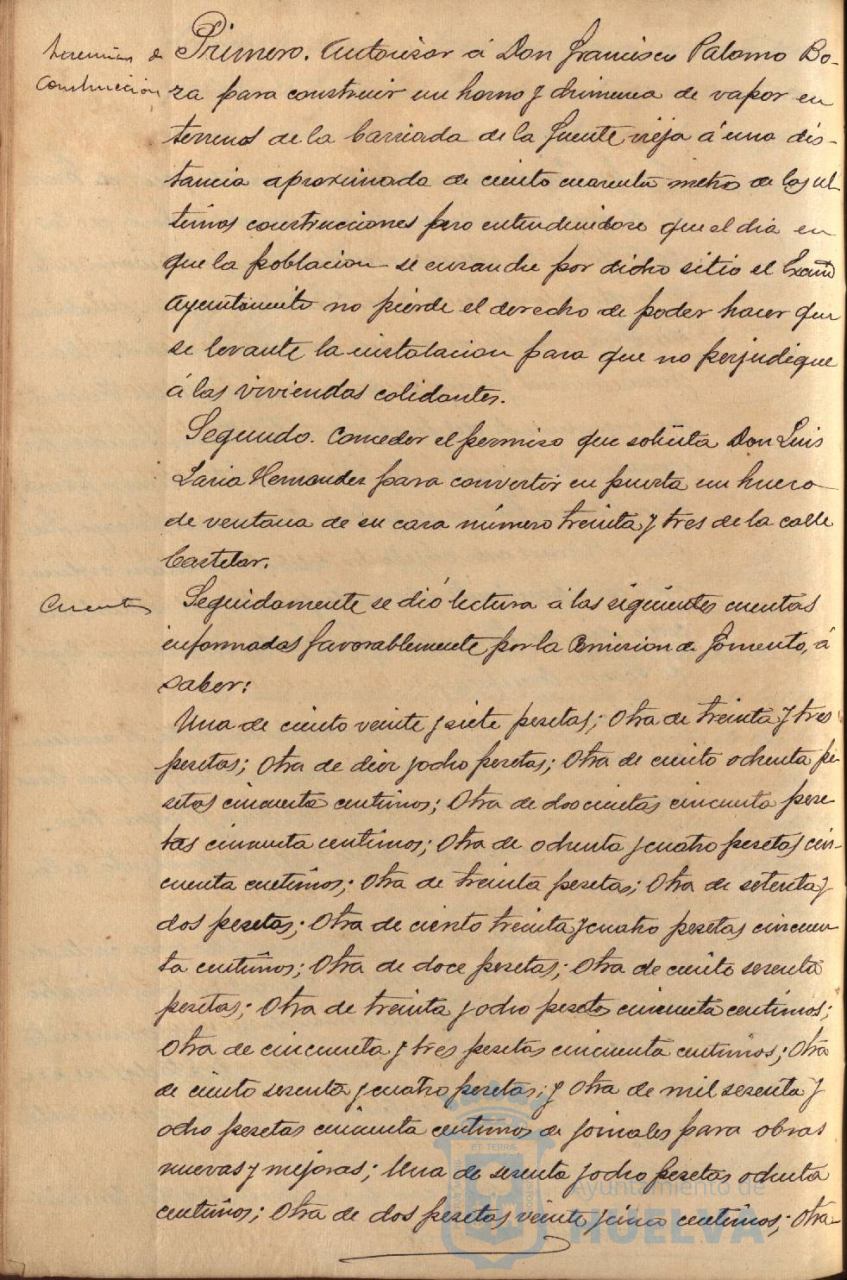 Licencias de
Construccion
Primero. Autorizar á Don Francisco Palomo Bo-
za para construir un horno y chimenea de vapor en
terrenos de la barriada de la fuente vieja á una dis-
tancia aproximada de ciento cuarenta metros de las ul-
timas construcciones pero entendiendose que el dia en
que la poblacion se ensanche por dicho sitio el Excmo
Ayuntamiento no pierde el derecho de poder hacer que
se levante la instalacion para que no perjudique
á las viviendas colidantes.
Segundo. Conceder el permiso que solicita Don Luis
Hernandez para convertir en puerta un hueco
de ventana de su casa número treinta y tres de la calle
Castelar.
Cuentas
Seguidamente se dió lectura á las siguientes cuentas
informadas favorablemente por la Comision de Fomento, á
saber:
Una de ciento veinte y siete pesetas; Otra de treinta y tres
pesetas; Otra de diez y ocho pesetas; Otra de ciento ochenta pe-
setas cincuenta centimos; Otra de doscientas cincuenta pese-
tas cincuenta centimos; Otra de ochenta y cuatro pesetas cin-
cuenta centimos; Otra de treinta pesetas; Otra de setenta y
dos pesetas; Otra de ciento treinta y cuatro pesetas cincuen-
ta centimos; Otra de doce pesetas; Otra de ciento sesenta
pesetas; Otra de treinta y ocho pesetas cincuenta centimos;
Otra de cincuenta y tres pesetas cincuenta centimos; Otra
de ciento sesenta y cuatro pesetas; y Otra de mil sesenta y
ocho pesetas cincuenta centimos de jornales para obras
nuevas y mejoras; Una de sesenta y ocho pesetas ochenta
centimos; Otra de dos pesetas veinte y cinco centimos; Otra
Ayuntamiento de
HUELVA